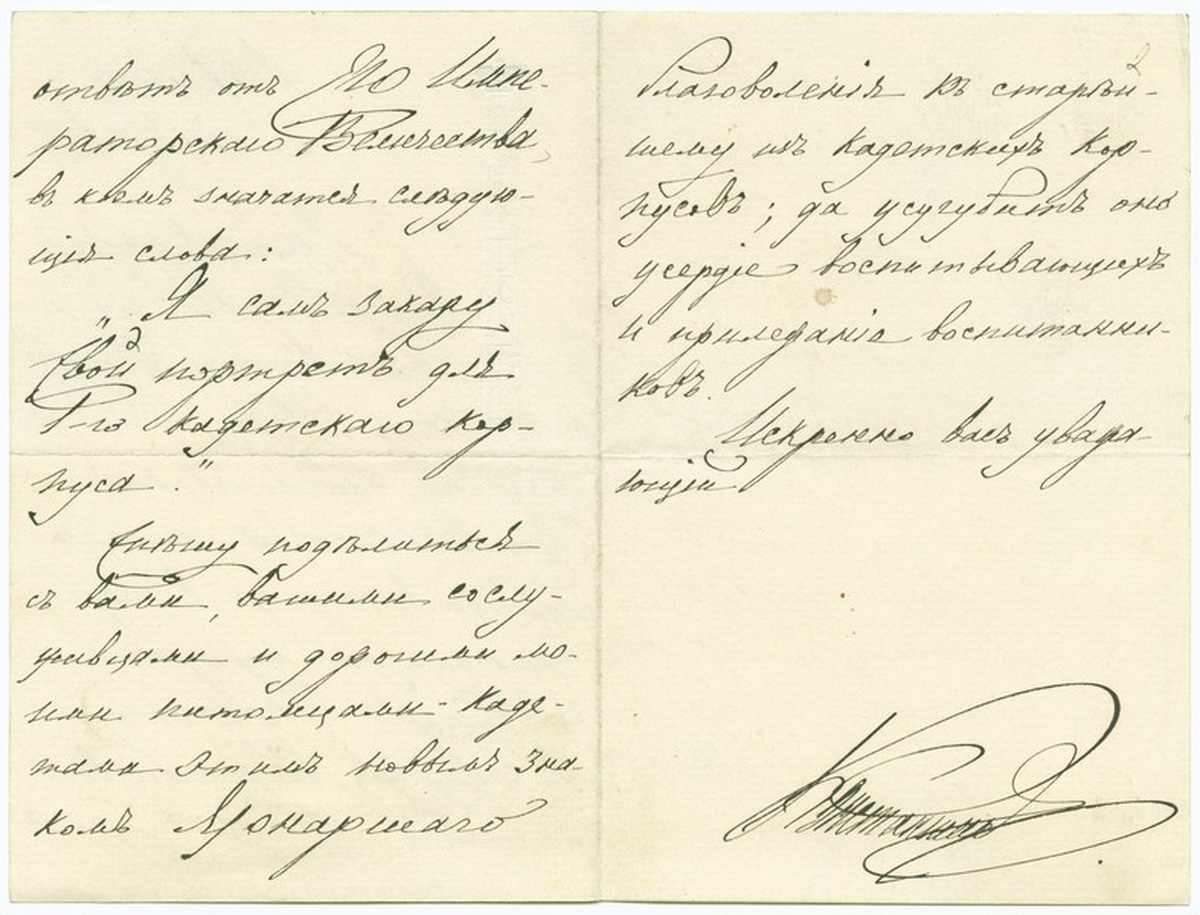 отвѣтъ отъ Его Импе-
раторскаго Величества,
въ коемъ значатся слѣдую-
щія слова:
„Я самъ закажу
Свой портретъ для
1-го кадетскаго кор-
пуса."
Спѣшу подѣлиться
съ вами, вашими сослу-
живцами и дорогими мо-
ими питомцами-каде-
тами этимъ новымъ зна-
комъ Монаршаго
2
благоволенія къ старѣй-
шему изъ кадетскихъ кор-
пусовъ; да усугубитъ оно
усердіе воспитывающихъ
и прилежаніе воспитанни-
ковъ.
Искренно васъ уважа-
ющій
Константинъ